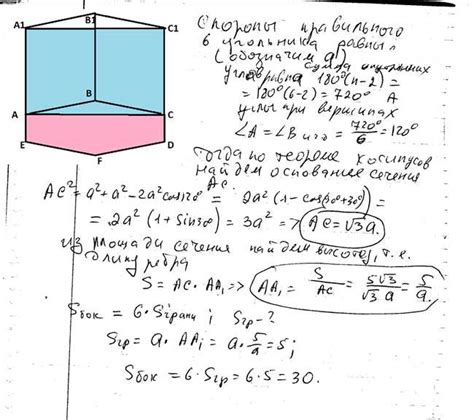 A1 B1 C1
B
A C
E D
F
Стороны правильного
6 угольника равны,
(обозначим a)
сумма
углов равна 180°(n-2) =
= 180°(6-2) = 720° A
углы при вершинах
∠A = ∠B и т.д = 720°/6 = 120°
Тогда по теореме косинусов
найдем основание сечения
AC
AC² = a² + a² - 2a² cos120° = 2a² (1 - cos(90°+30°)) =
= 2a² (1 + sin30°) = 3a² => AC = √3 a.
из площади сечения найдем высоту, т.е.
длину ребра
S = AC · AA₁ => AA₁ = S/AC = 5√3/√3 a = 5/a.
Sбок = 6 · Sграни ; Sгр - ?
Sгр = a · AA₁ = a · 5/a = 5;
Sбок = 6 · Sгр = 6 · 5 = 30.